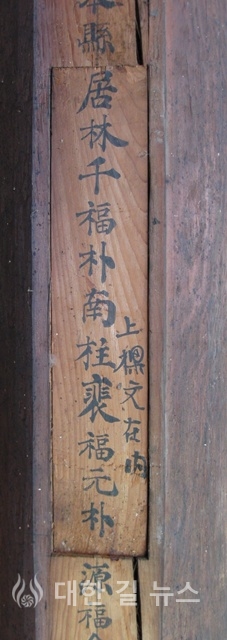 本縣
居林千福朴南柱裵福元朴
源福
上樑文在內
대한길 뉴스